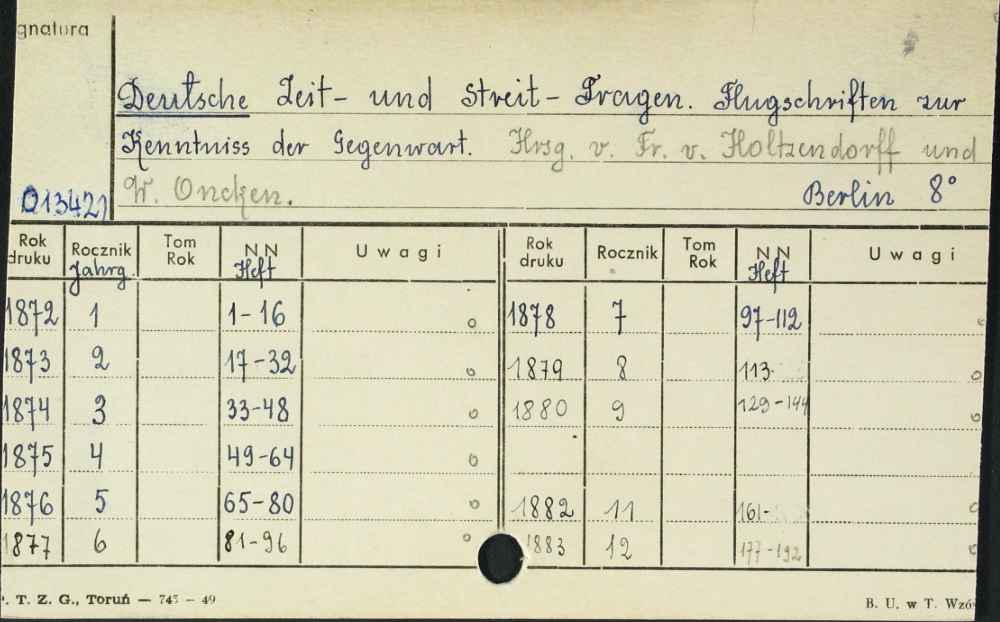 gnatura
Deutsche Zeit- und Streit-Fragen. Flugschriften zur
Kenntniss der Gegenwart. Hrsg. v. Fr. v. Holtzendorff und
W. Oncken. Berlin 8°
013421
Rok druku Rocznik Jahrg. Tom Rok NN Heft Uwagi Rok druku Rocznik Tom Rok NN Heft Uwagi
1872 1 1-16 o 1878 7 97-112 o
1873 2 17-32 o 1879 8 113- o
1874 3 33-48 o 1880 9 129-144 o
1875 4 49-64 o
1876 5 65-80 o 1882 11 161- o
1877 6 81-96 o 1883 12 177-192 o
. T. Z. G., Toruń — 745 - 49 B. U. w T. Wzó